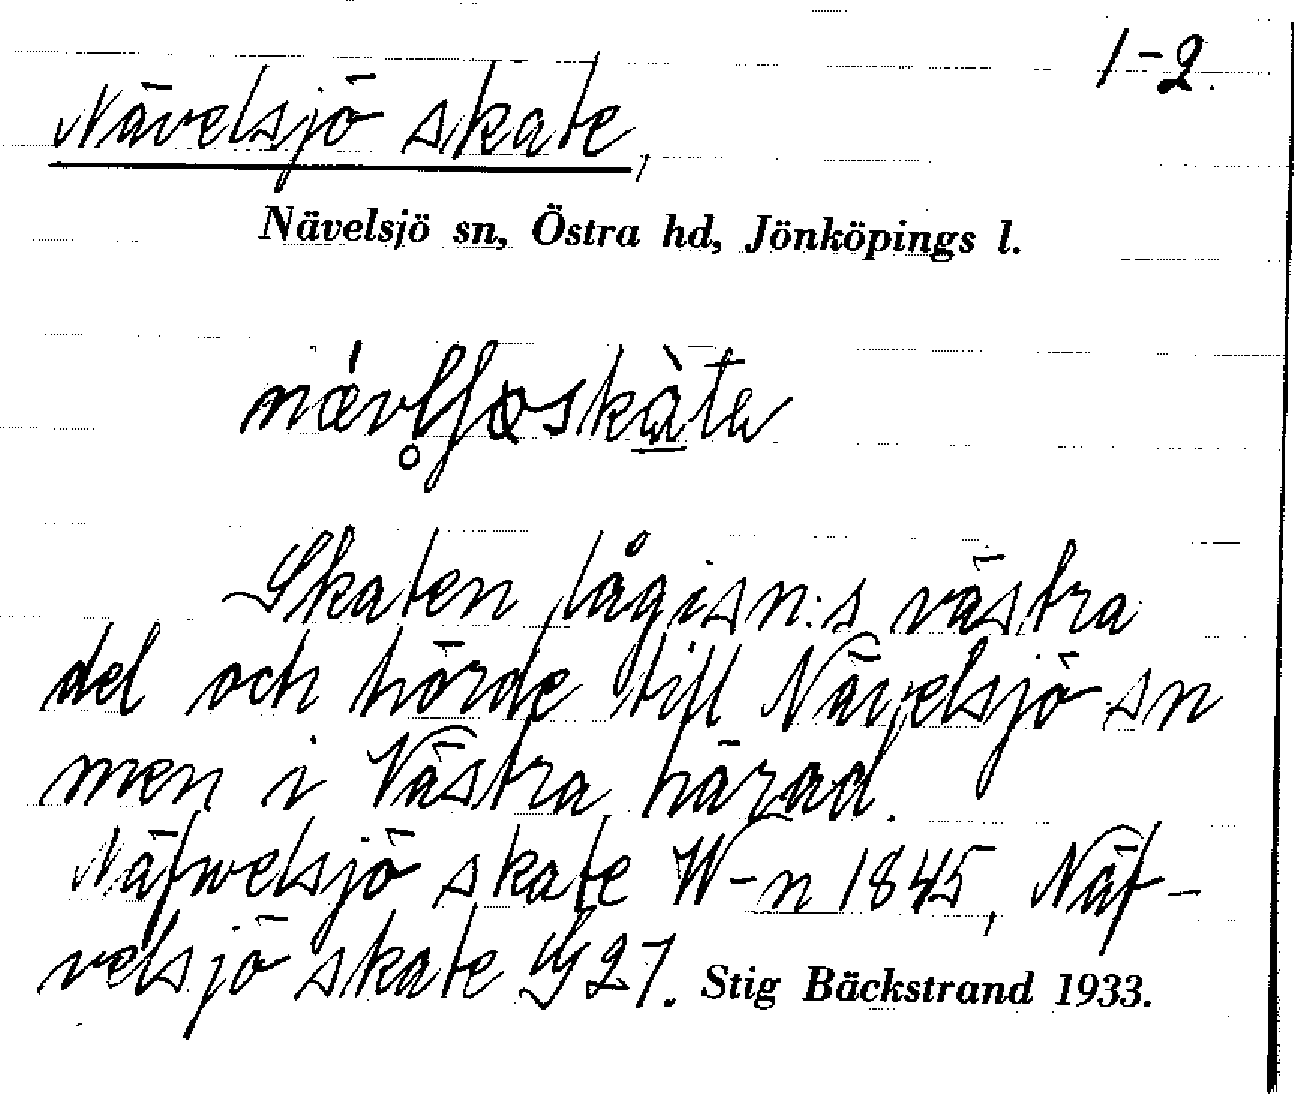 1-2.
Nävelsjö skate,
Nävelsjö sn, Östra hd, Jönköpings l.
Skaten låg i sn:s västra
del och hörde till Nävelsjö sn
men i Västra härad.
Näfwelsjö skate W-n 1845, Näf-
velsjö skate 27. Stig Bäckstrand 1933.